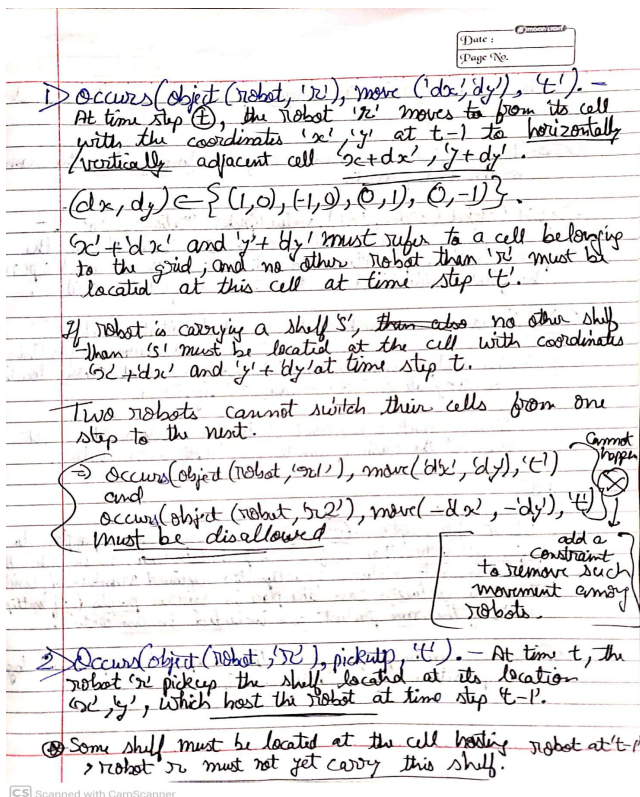 Date :
Page No.
1) Occurs(object (robot, 'r'), move ('dx','dy'), 't'). –
At time step (t), the robot 'r' moves to from its cell
with the coordinates 'x' 'y' at t-1 to horizontally
/vertically adjacent cell 'x+dx', 'y+dy'.
(dx, dy) ∈ { (1,0), (-1,0), (0,1), (0,-1)}.
'x'+'dx' and 'y'+'dy' must refer to a cell belonging
to the grid, and no other robot than 'r' must be
located at this cell at time step 't'.
If robot is carrying a shelf 'S', then also no other shelf
than 'S' must be located at the cell with coordinates
'x'+'dx' and 'y'+'dy' at time step t.
Two robots cannot switch their cells from one
step to the next.
Cannot
happen
⇒ occurs(object(robot,'r1'), move('dx','dy'),'t')
and
occurs(object(robot,'r2'), move(-'dx', -'dy'), 't')
must be disallowed
add a
constraint
to remove such
movement among
robots.
2) Occurs(object (robot,'r'), pickup, 't'). – At time t, the
robot 'r' pickup the shelf located at its location
'x','y', which host the robot at time step 't-1'.
Some shelf must be located at the cell hosting robot at 't-1'
, robot r must not yet carry this shelf.
CS Scanned with CamScanner